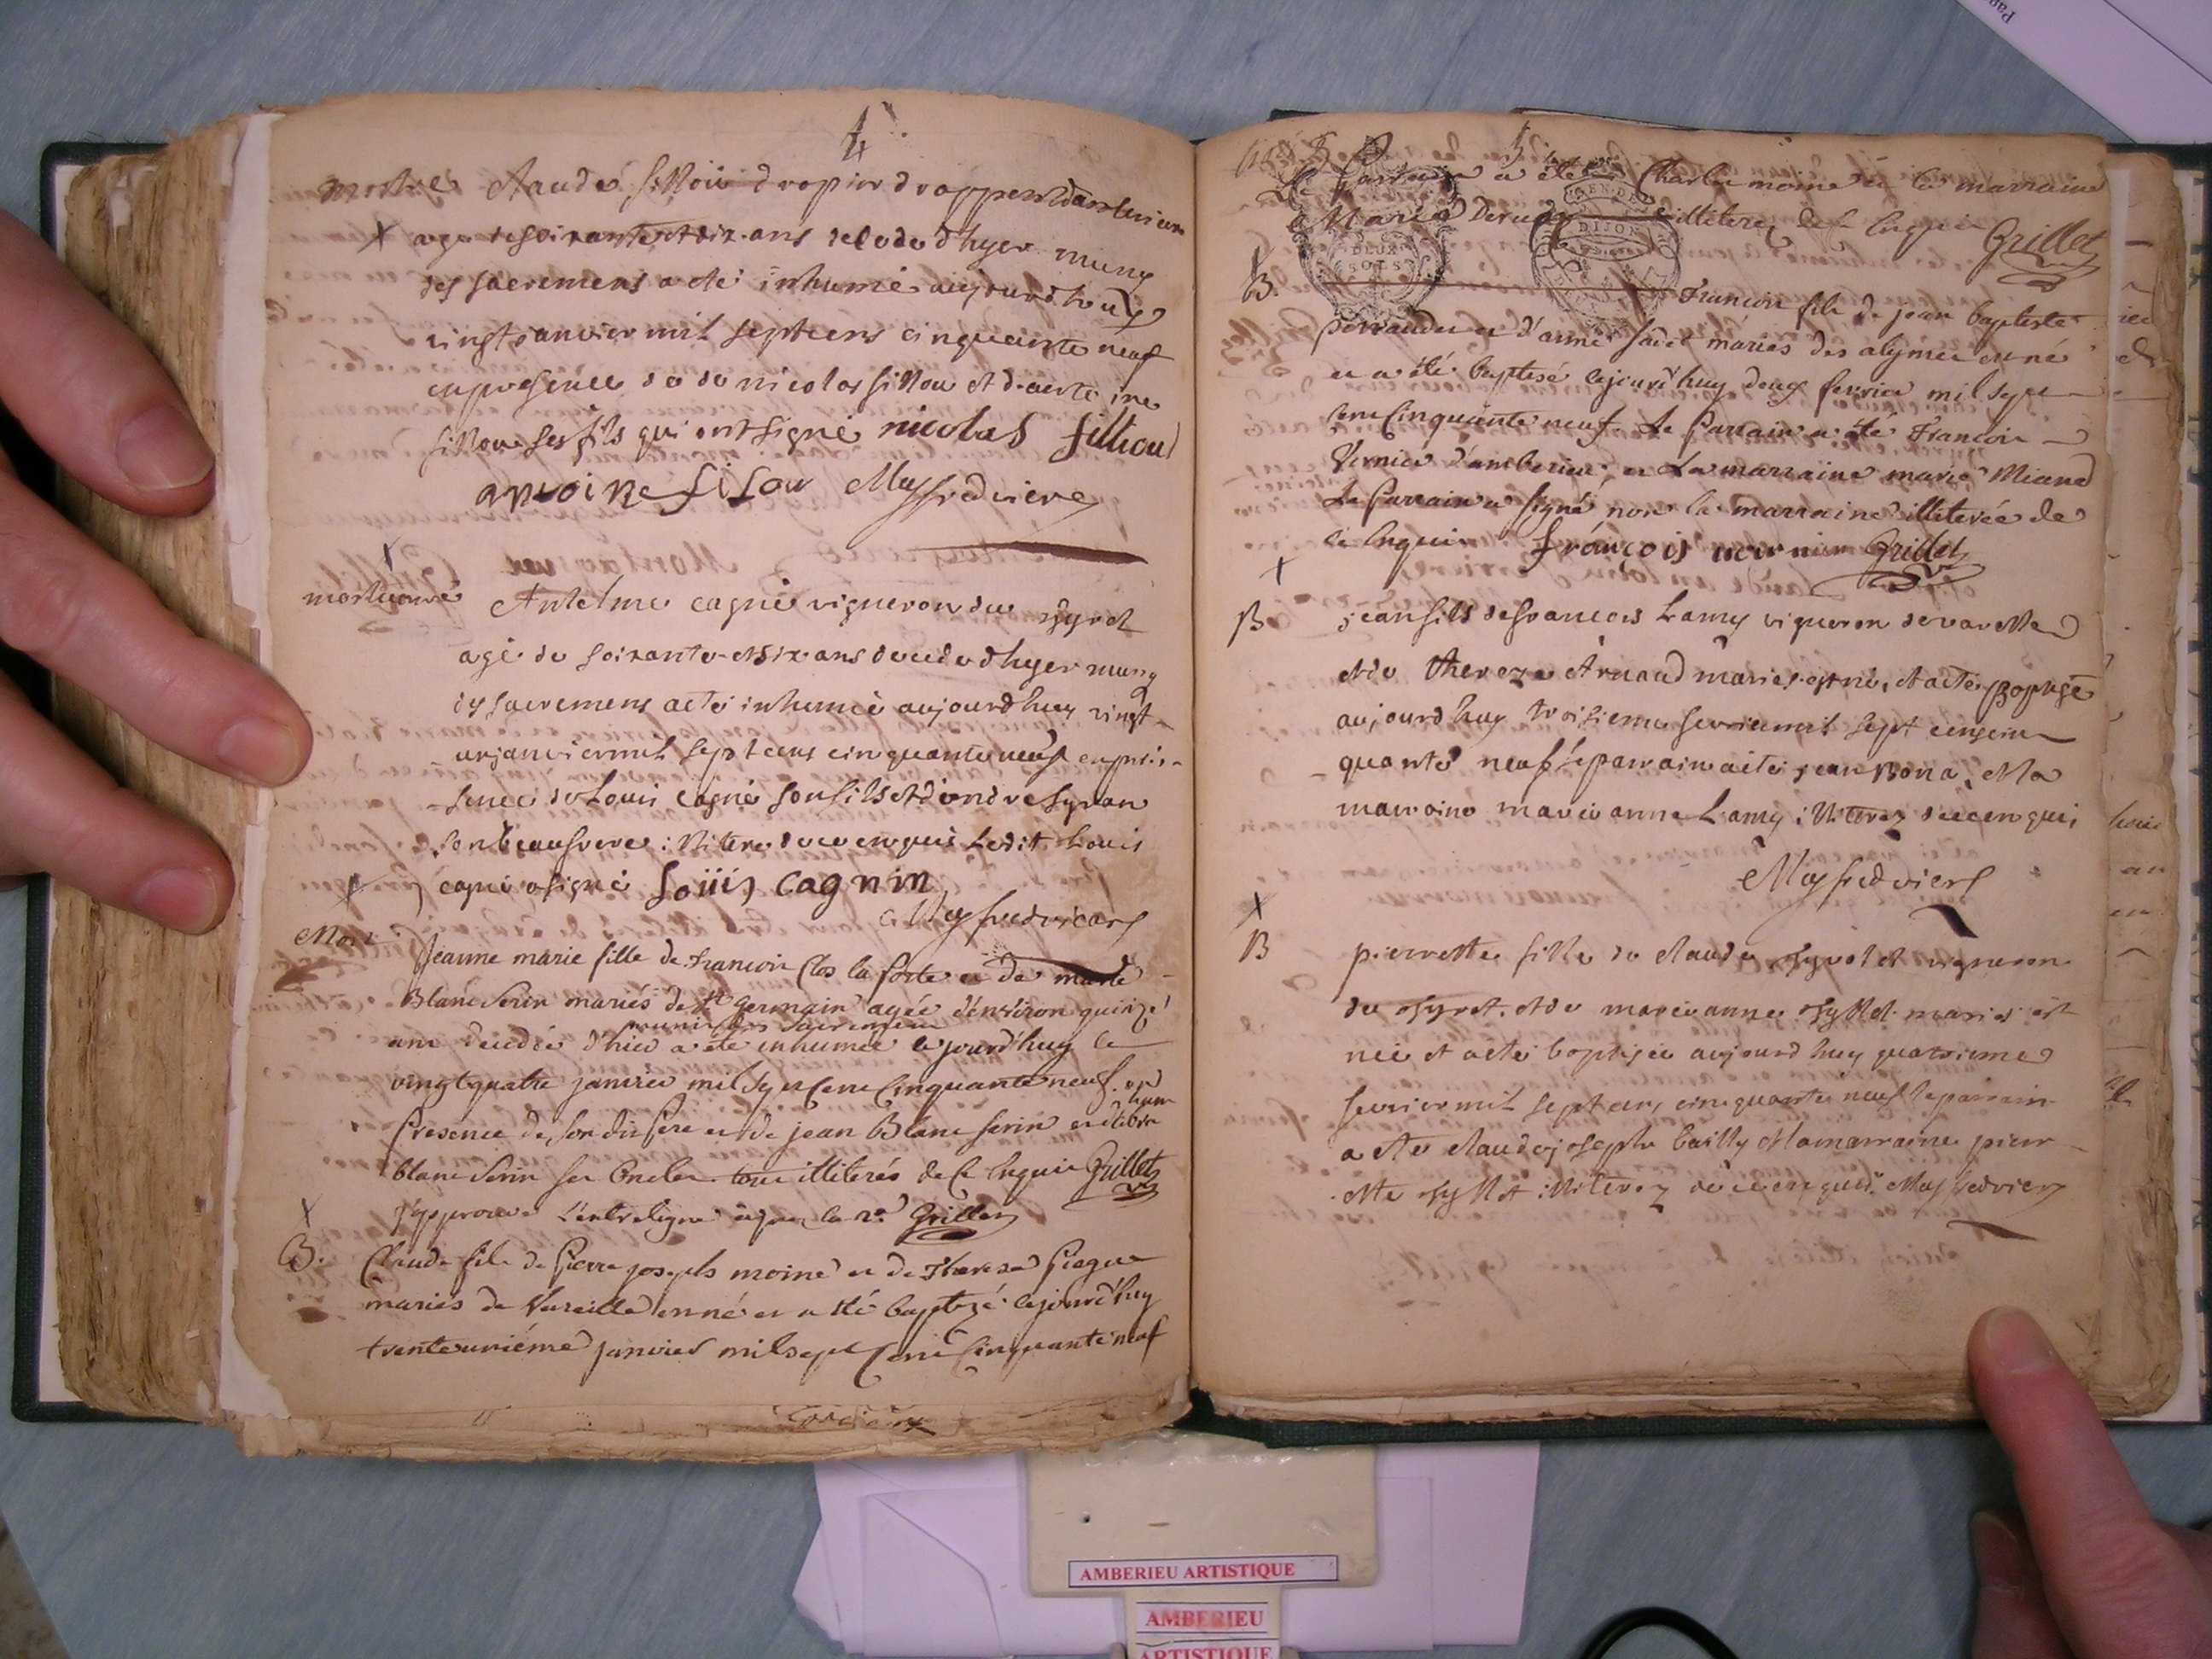 4
Claude fillou drapier drappent d'amberieux
agé de soixante et dix ans decede d'hyer muny
des sacremens a eté inhumé aujourdhuy
vingt janvier mil sept cens cinquante neuf
en presence de de nicolas fillou et d'antoine
fillou ses fils qui ont signé nicolas filliou
antoine filou
mortuaire Antelme cagnin vigneron du
agé de soixante et dix ans decede d'hyer muny
des sacremens a eté inhumé aujourdhuy vingt
un janvier mil sept cens cinquante neuf en pre-
-sence de Louis cagnin son fils et d'andre
son beaufrere illiteré de ce enquis Ledit Louis
cagnin a signé Loüis cagnin
Mort
Jeanne marie fille de francois Clos la forte et de marie
Blanc Serin mariés de st germain agée d'environ quinze
munie des Sacremens
ans decedée d'hier a eté inhumée cejourd'huy le
vingt quatre janvier mil sept cent Cinquante neuf en
Presence de son dit Père et de jean Blanc Serin et
blanc Serin ses Oncles tous illiterés de ce Enquis Grillet
j'approuve L'entreligne Grillet
B.
Claude fils de Pierre joseph moine et de Therese
mariés de Vareille est né et a été baptizé cejourd'huy
trente unième janvier mil sept Cent Cinquante neuf
5
Le Parrain a été Charles moine et la marraine
Marie illiterez de ce Enquis Grillet
DEUX
SOLS
GEN. DE
DIJON
B.
François fils de jean baptiste
perraudin et d'anne mariés des alymes est né
et a été baptisé cejourd'huy deux fevrier mil sept
Cent Cinquante neuf Le Parrain a été François
Vernier d'amberieu, et La marraine marie Miand
Le Parrain a signé non la marraine illiterée de
ce Enquis françois vernier Grillet
B
jean fils de francois Lamy vigneron de vareille
et de thereze Arnaud mariés est né, et a eté Baptisé
aujourdhuy troisieme fevrier mil sept cens cin-
-quante neuf le parrain a eté jean Bona, et la
marraine marie anne Lamy illiterez de ce enquis
B
pierrette fille de claude vigneron
du et de marie anne mariés est
née et a eté baptisée aujourdhuy quatrieme
fevrier mil sept cens cinquante neuf le parrain
a eté claude joseph bailly et la marraine pierr-
ette illiterez de ce enquis
AMBERIEU ARTISTIQUE
AMBERIEU
ARTISTIQUE